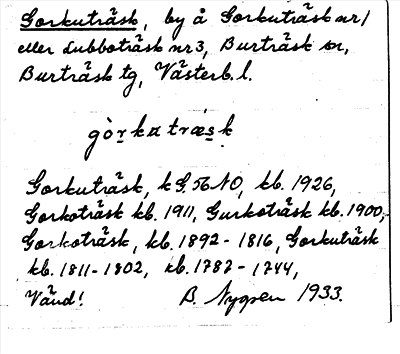 Gorkuträsk, by å Gorkuträsk nr 1
eller Lubboträsk nr 3, Burträsk sn,
Burträsk tg, Västerb. l.
gòrkatræsk
Gorkuträsk, k G. 56 NO, kb. 1926,
Gorkoträsk kb. 1911, Gurkoträsk kb. 1900,
Gorkoträsk, kb. 1892-1816, Gorkuträsk
kb. 1811-1802, kb. 1787-1744,
Vänd! B. Nygren 1933.